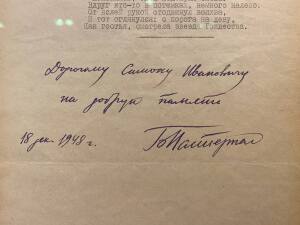 Вдруг кто-то в потемках, немного налево
От яслей рукой отодвинул волхва,
И тот оглянулся: с порога на деву,
Как гостья, смотрела звезда Рождества.
Дорогому Симону Ивановичу
на добрую память
18 дек. 1948 г.
Б Пастернак